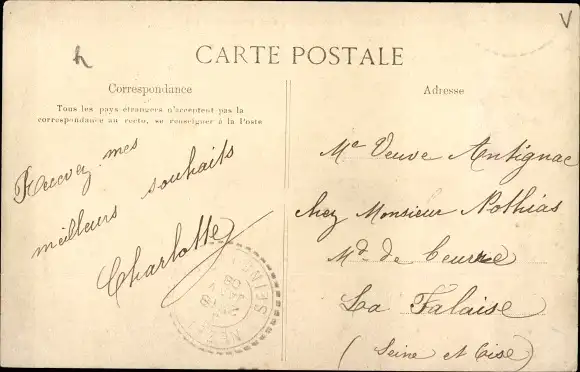 CARTE POSTALE
Correspondance
Tous les pays étrangers n'acceptent pas la
correspondance au recto, se renseigner à la Poste
Recevez mes
meilleurs souhaits
Charlotte
Adresse
Me Veuve Antignac
chez Monsieur Pothias
Md de Beurre
La Falaise
(Seine et Oise)
SEINE